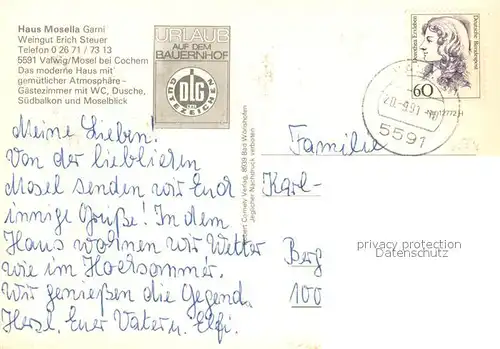 Haus Mosella Garni
Weingut Erich Steuer
Telefon 0 26 71 / 73 13
5591 Valwig/Mosel bei Cochem
Das moderne Haus mit
gemütlicher Atmosphäre –
Gästezimmer mit WC, Dusche,
Südbalkon und Moselblick
URLAUB
AUF DEM
BAUERNHOF
DLG
GÜTEZEICHEN
Dorothea Erxleben
Deutsche Bundespost
60
5591
Meine Lieben!
Von der lieblichen
Mosel senden wir Euch
innige Grüße! In dem
Haus wohnen wir Wetter
wie im Hochsommer.
Wir genießen die Gegend.
Herzl. Euer Vater u. Elfi.
Cornely Verlag, 8939 Bad Wörishofen
Jeglicher Nachdruck verboten
Familie
Karl-
Berg
100
privacy protection
Datenschutz